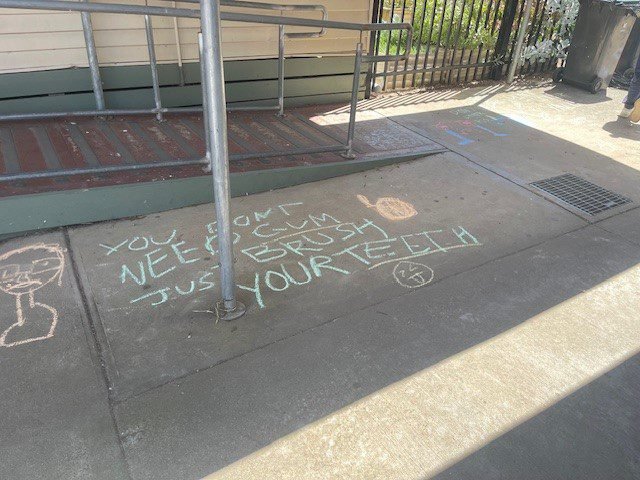 YOU DONT
NEED GUM
JUST BRUSH
YOUR TEETH